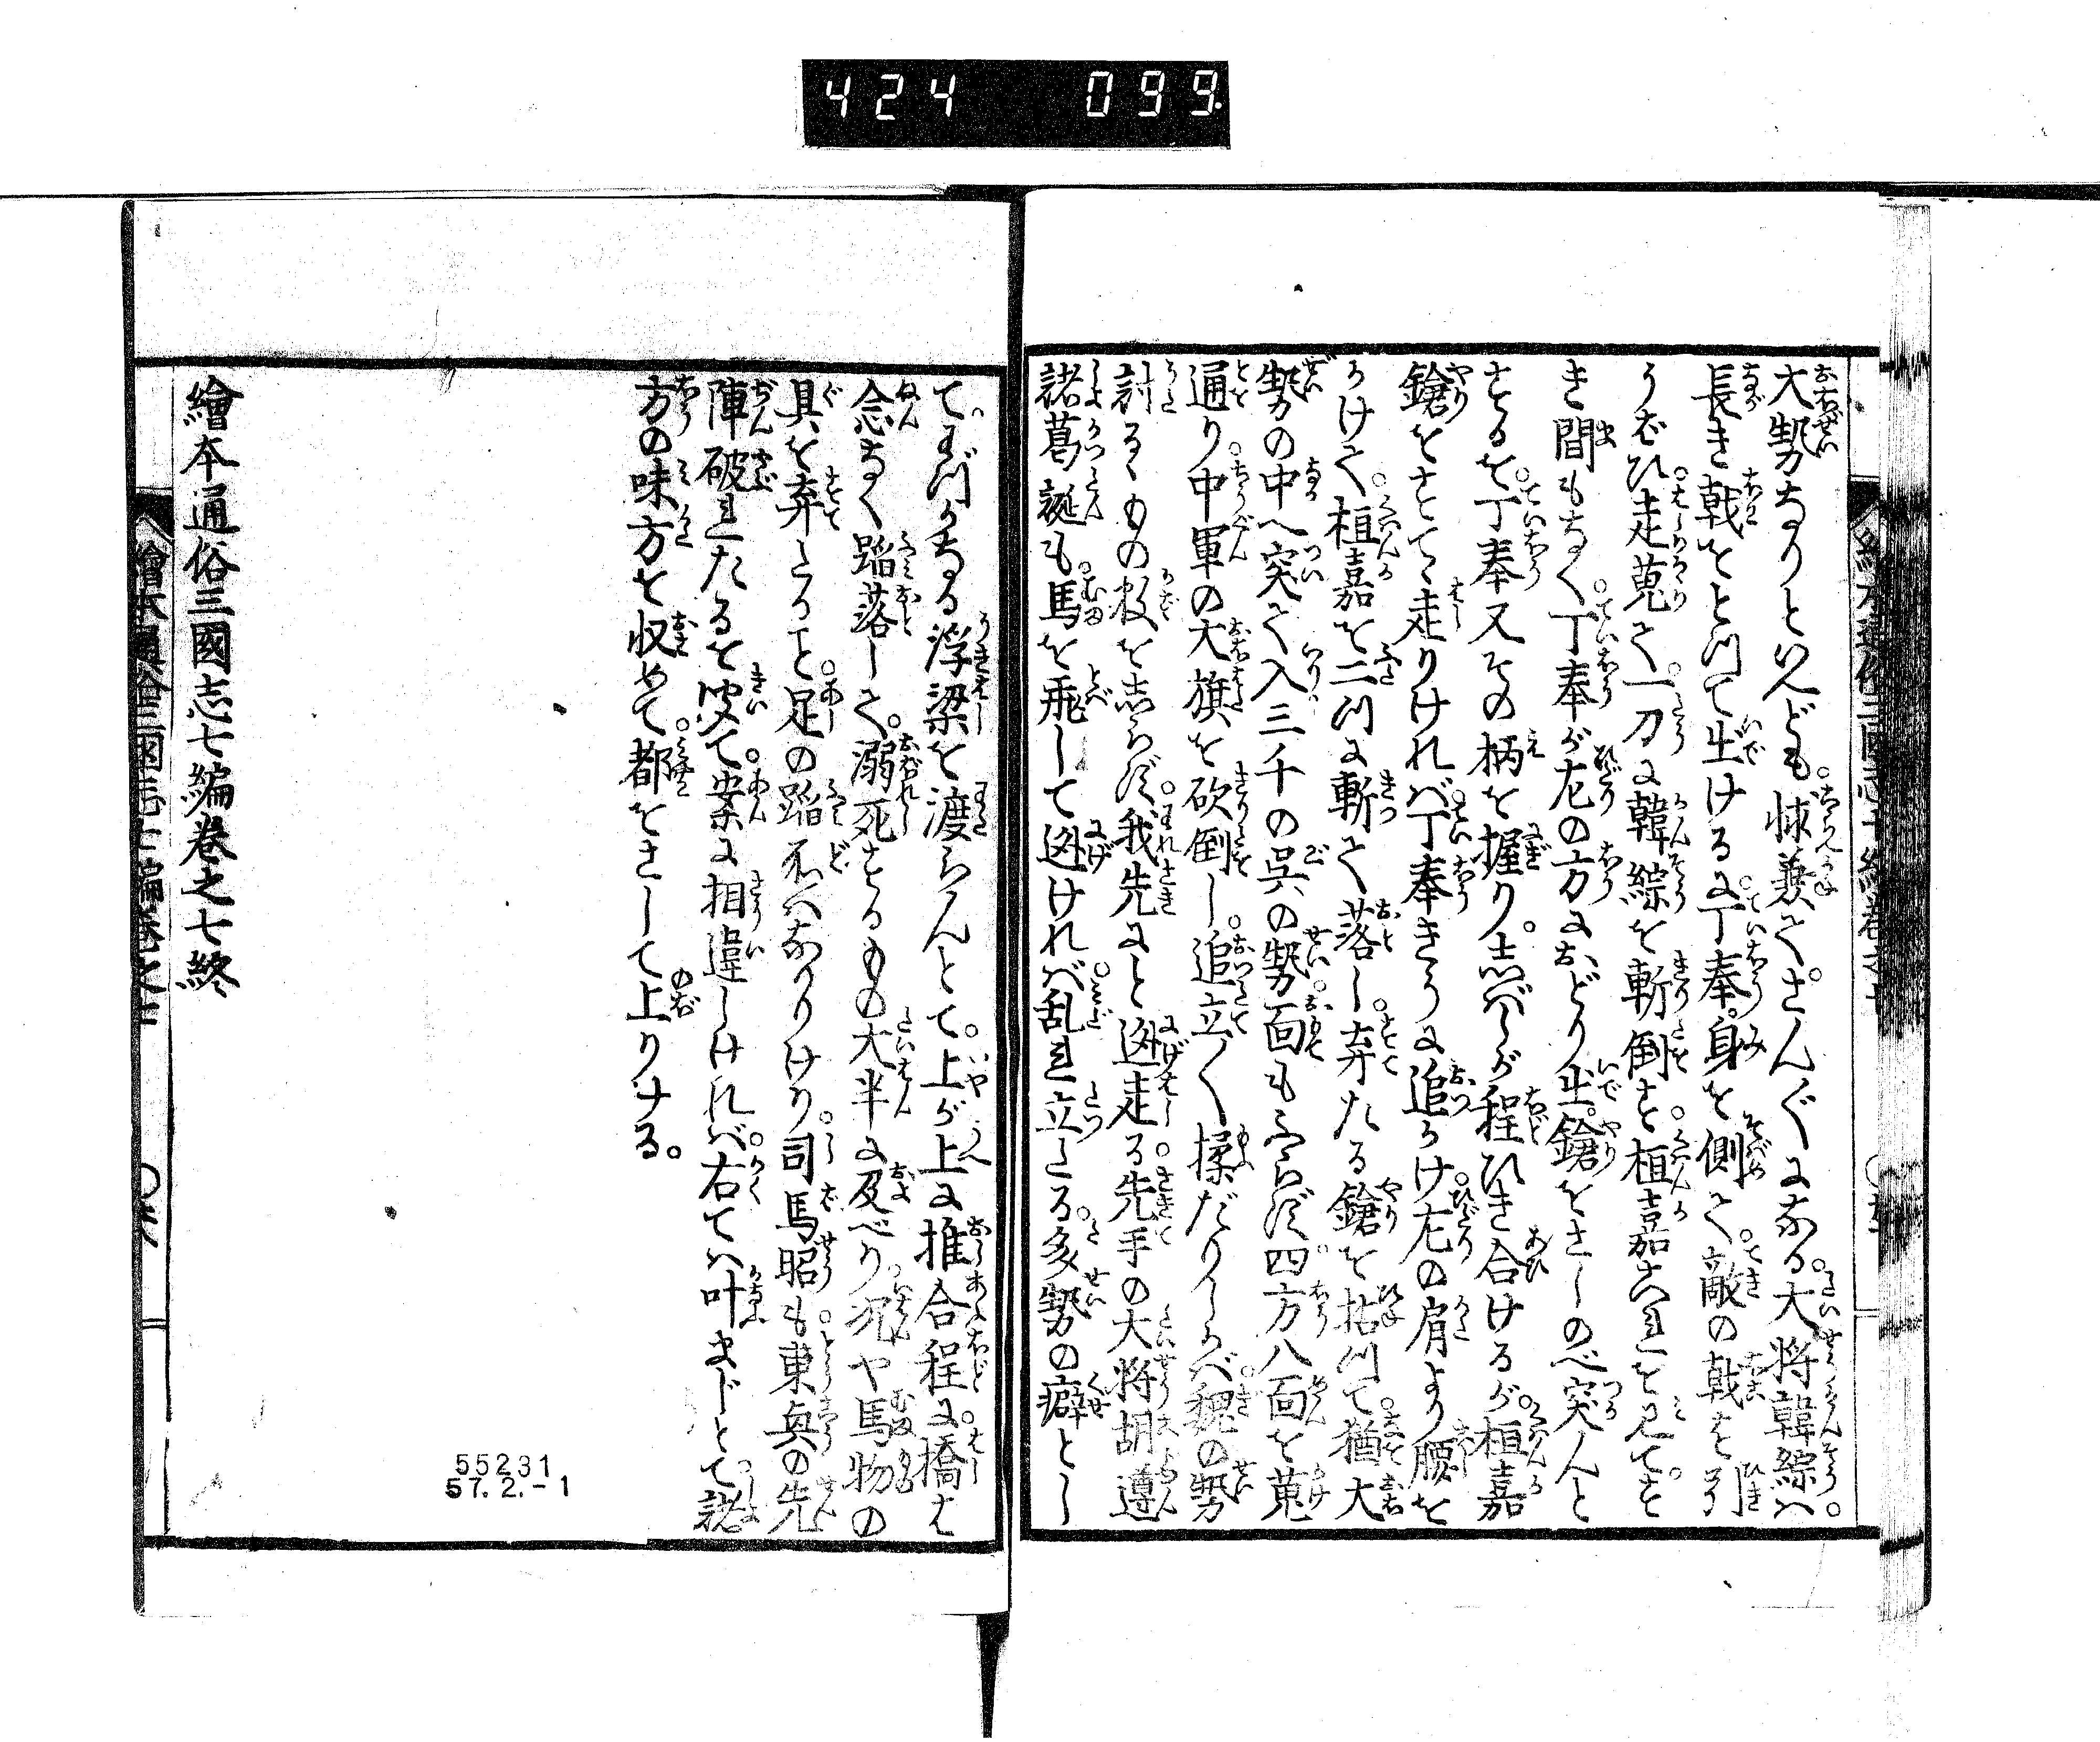 424 099
大勢なりといへども。悕兼て。さんぐになる。大将韓綜ハ。
長き戟をとつて出けるに。丁奉。身を側て。敵の戟を引
うばひ。走蒐て。一刀に韓綜を斬倒す。桓嘉これを見て。す
き間もなく。丁奉が左の方にをどり出。鎗をさしのべ突んと
するを。丁奉又その柄を握り。志ばしが程ひき合けるが。桓嘉
鎗をすてゝ走りければ。丁奉きうに追かけ。左の肩より腰を
かけて。桓嘉を二つに斬て落し。弃たる鎗を拾つて。猶大
勢の中へ突て入。三千の呉の勢。面もふらず。四方八面を蒐
通り。中軍の大旗を砍倒し。追立〱揉だりしかば。魏の勢
討るゝもの数を志らず。我先にと迯走る。先手の大将胡遵
諸葛誕も。馬を飛して迯ければ。乱れ立たる。多勢の癖とし
て。まづかなる浮梁を渡らんとて。上が上に推合程に。橋を
念なく蹈落して。溺死するもの大半に及べり。况や馬物の
具を弃たること。足の蹈不ハなかりけり。司馬昭も。東兵の先
陣破れたるを聞て。案に相違しければ。右てハ叶まじとて。諸
方の味方を収めて。都をさして上りける。
繪本通俗三國志七編巻之七終
繪本通俗三国志七編巻之七
55231
57.2.-1